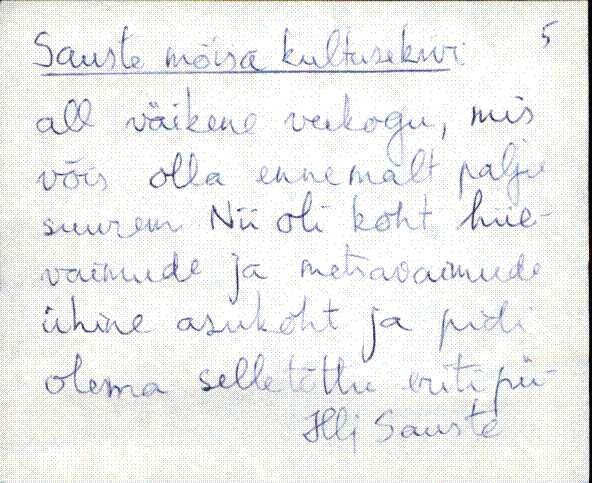 5
Sauste mõisa kultusekivi
all väikene veekogu, mis
võis olla ennemalt palju
suurem Nii oli koht hiie-
vaimude ja metsavaimude
ühine asukoht ja pidi
olema selletõttu eriti pü-
Sauste